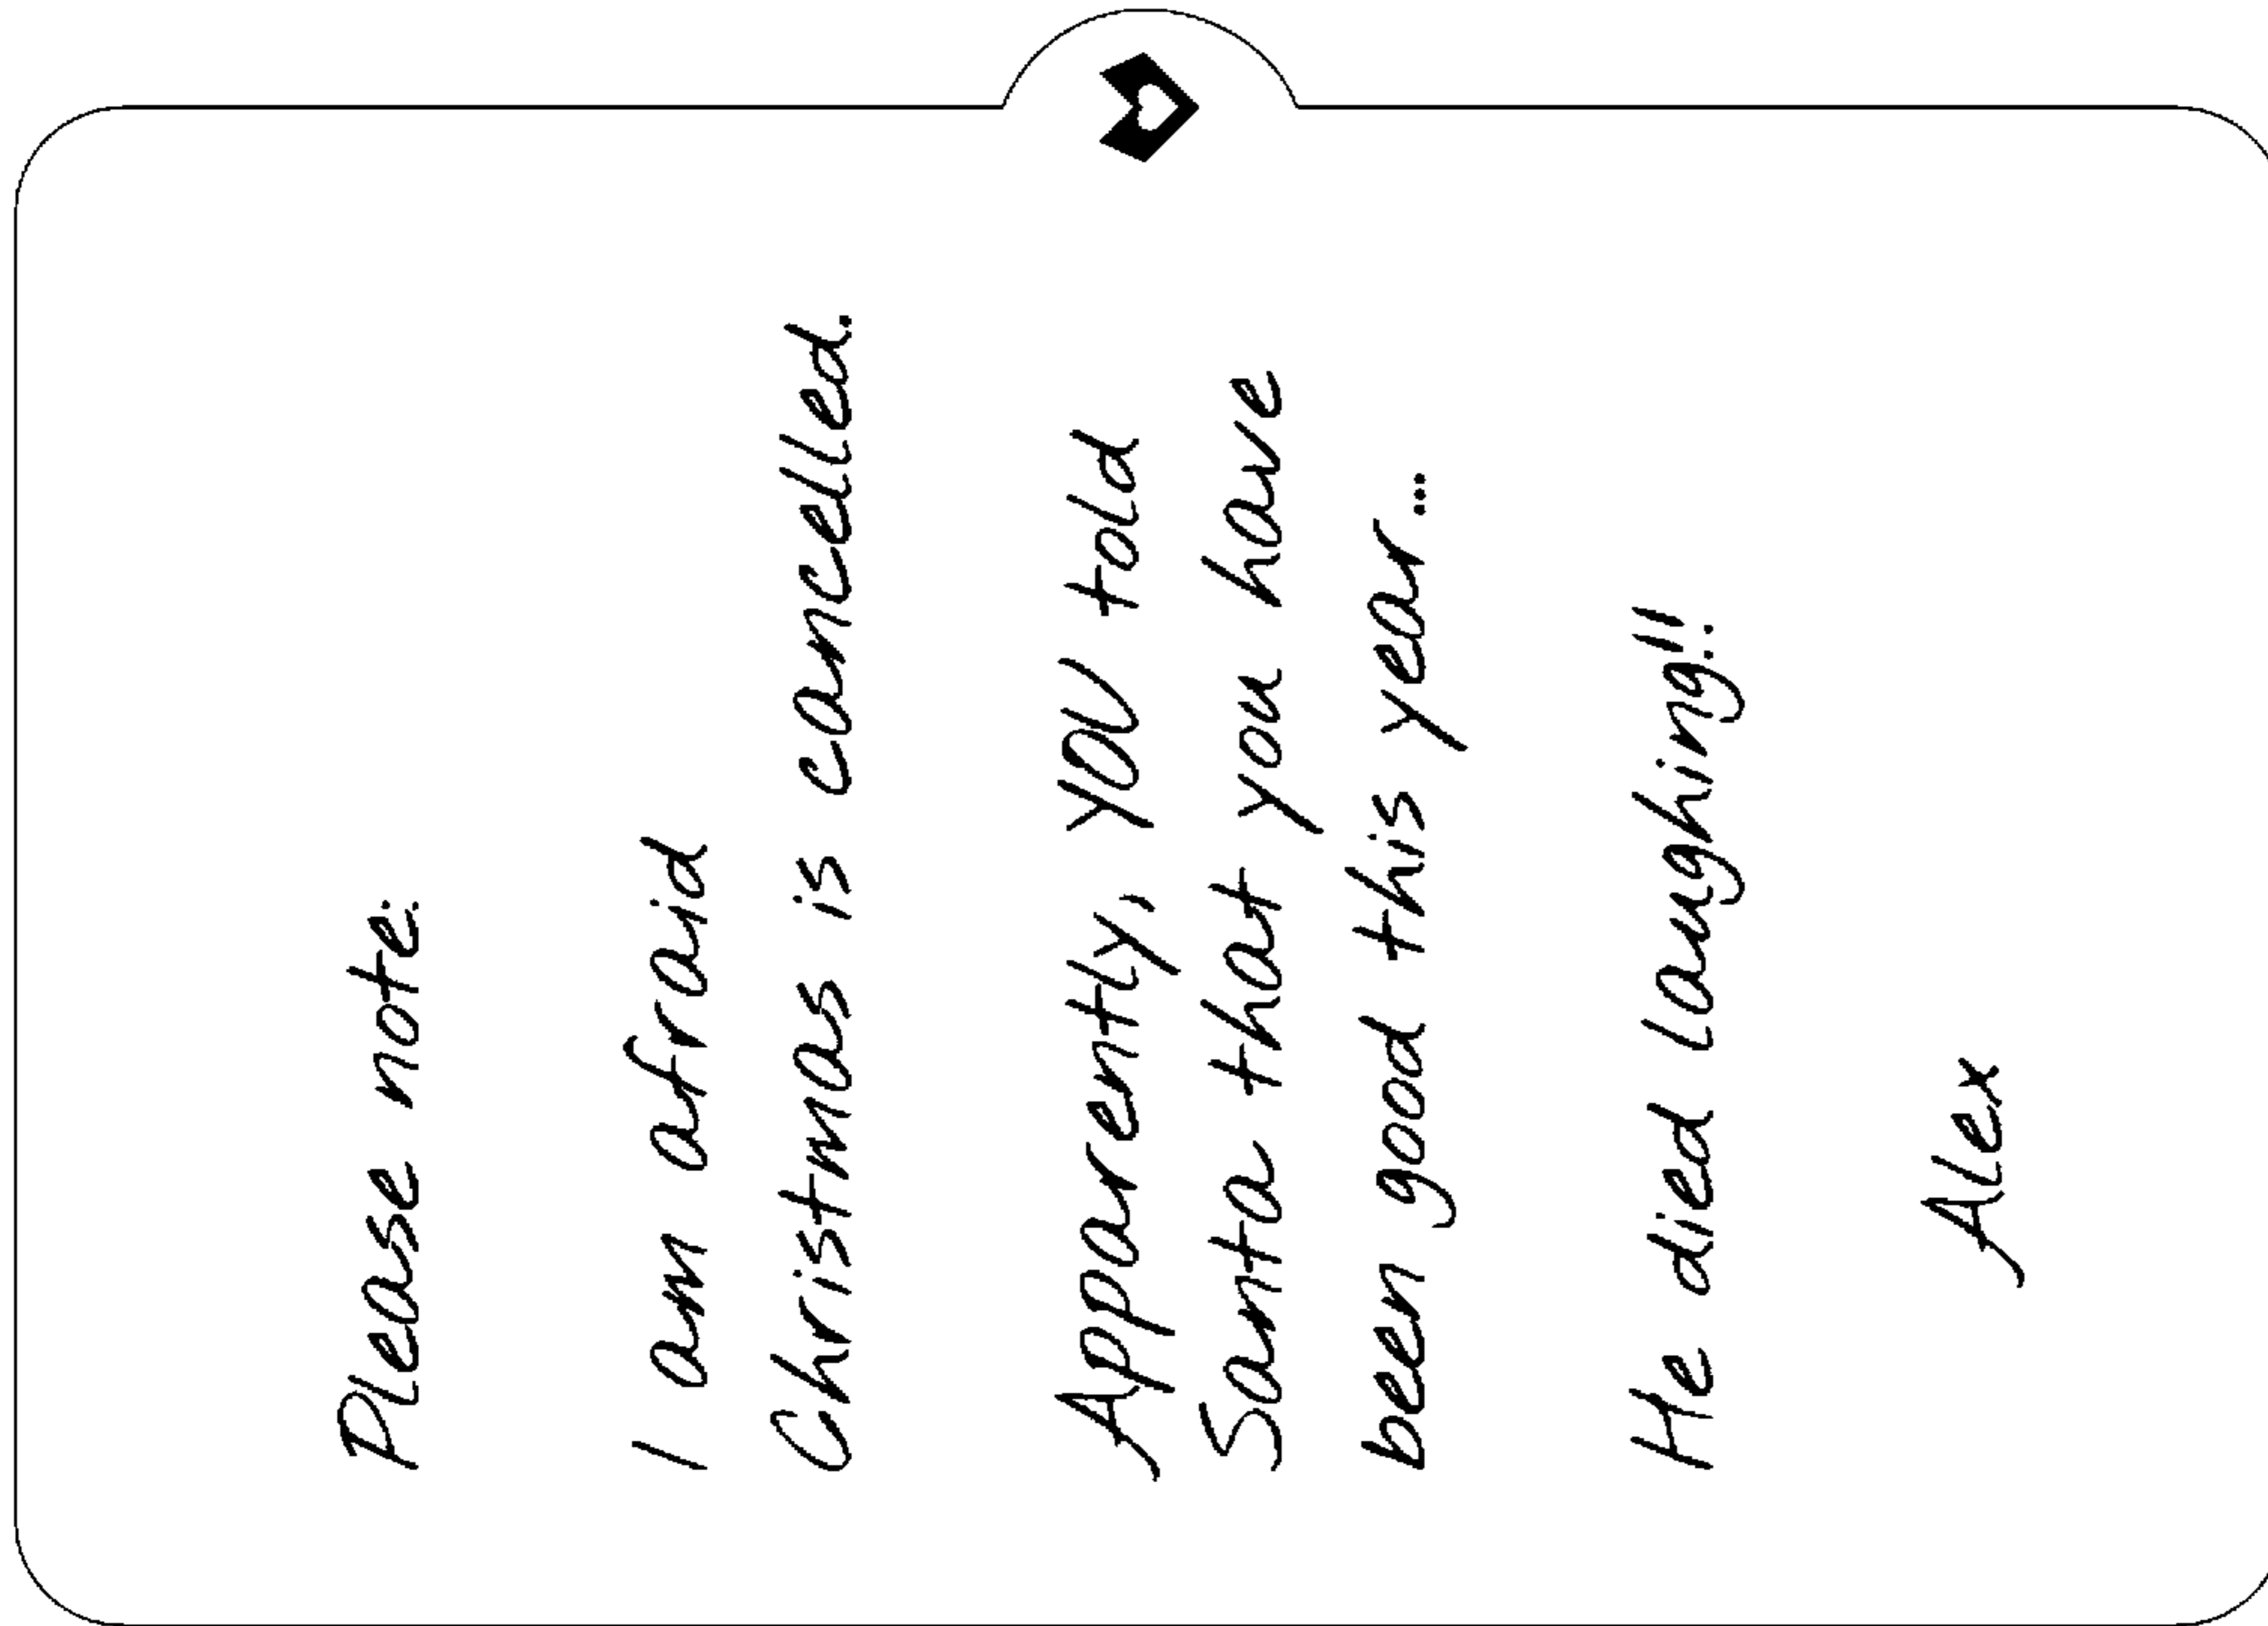 Please note:
I am afraid
Christmas is cancelled.
Apparently, YOU told
Santa that you have
been good this year...
He died laughing!!
Alex